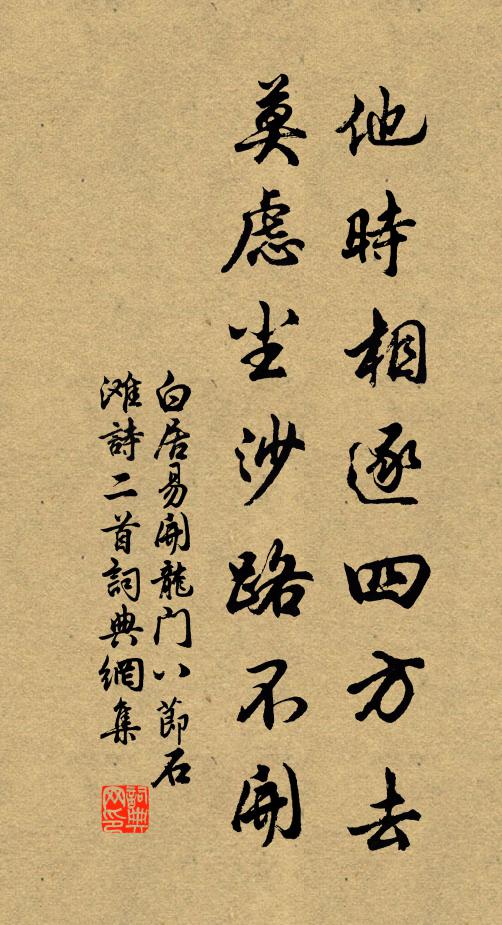 他時相逐四方去
莫慮尘沙路不開
白居易開龍门八節石
滩詩二首詞典網集
詞典网印